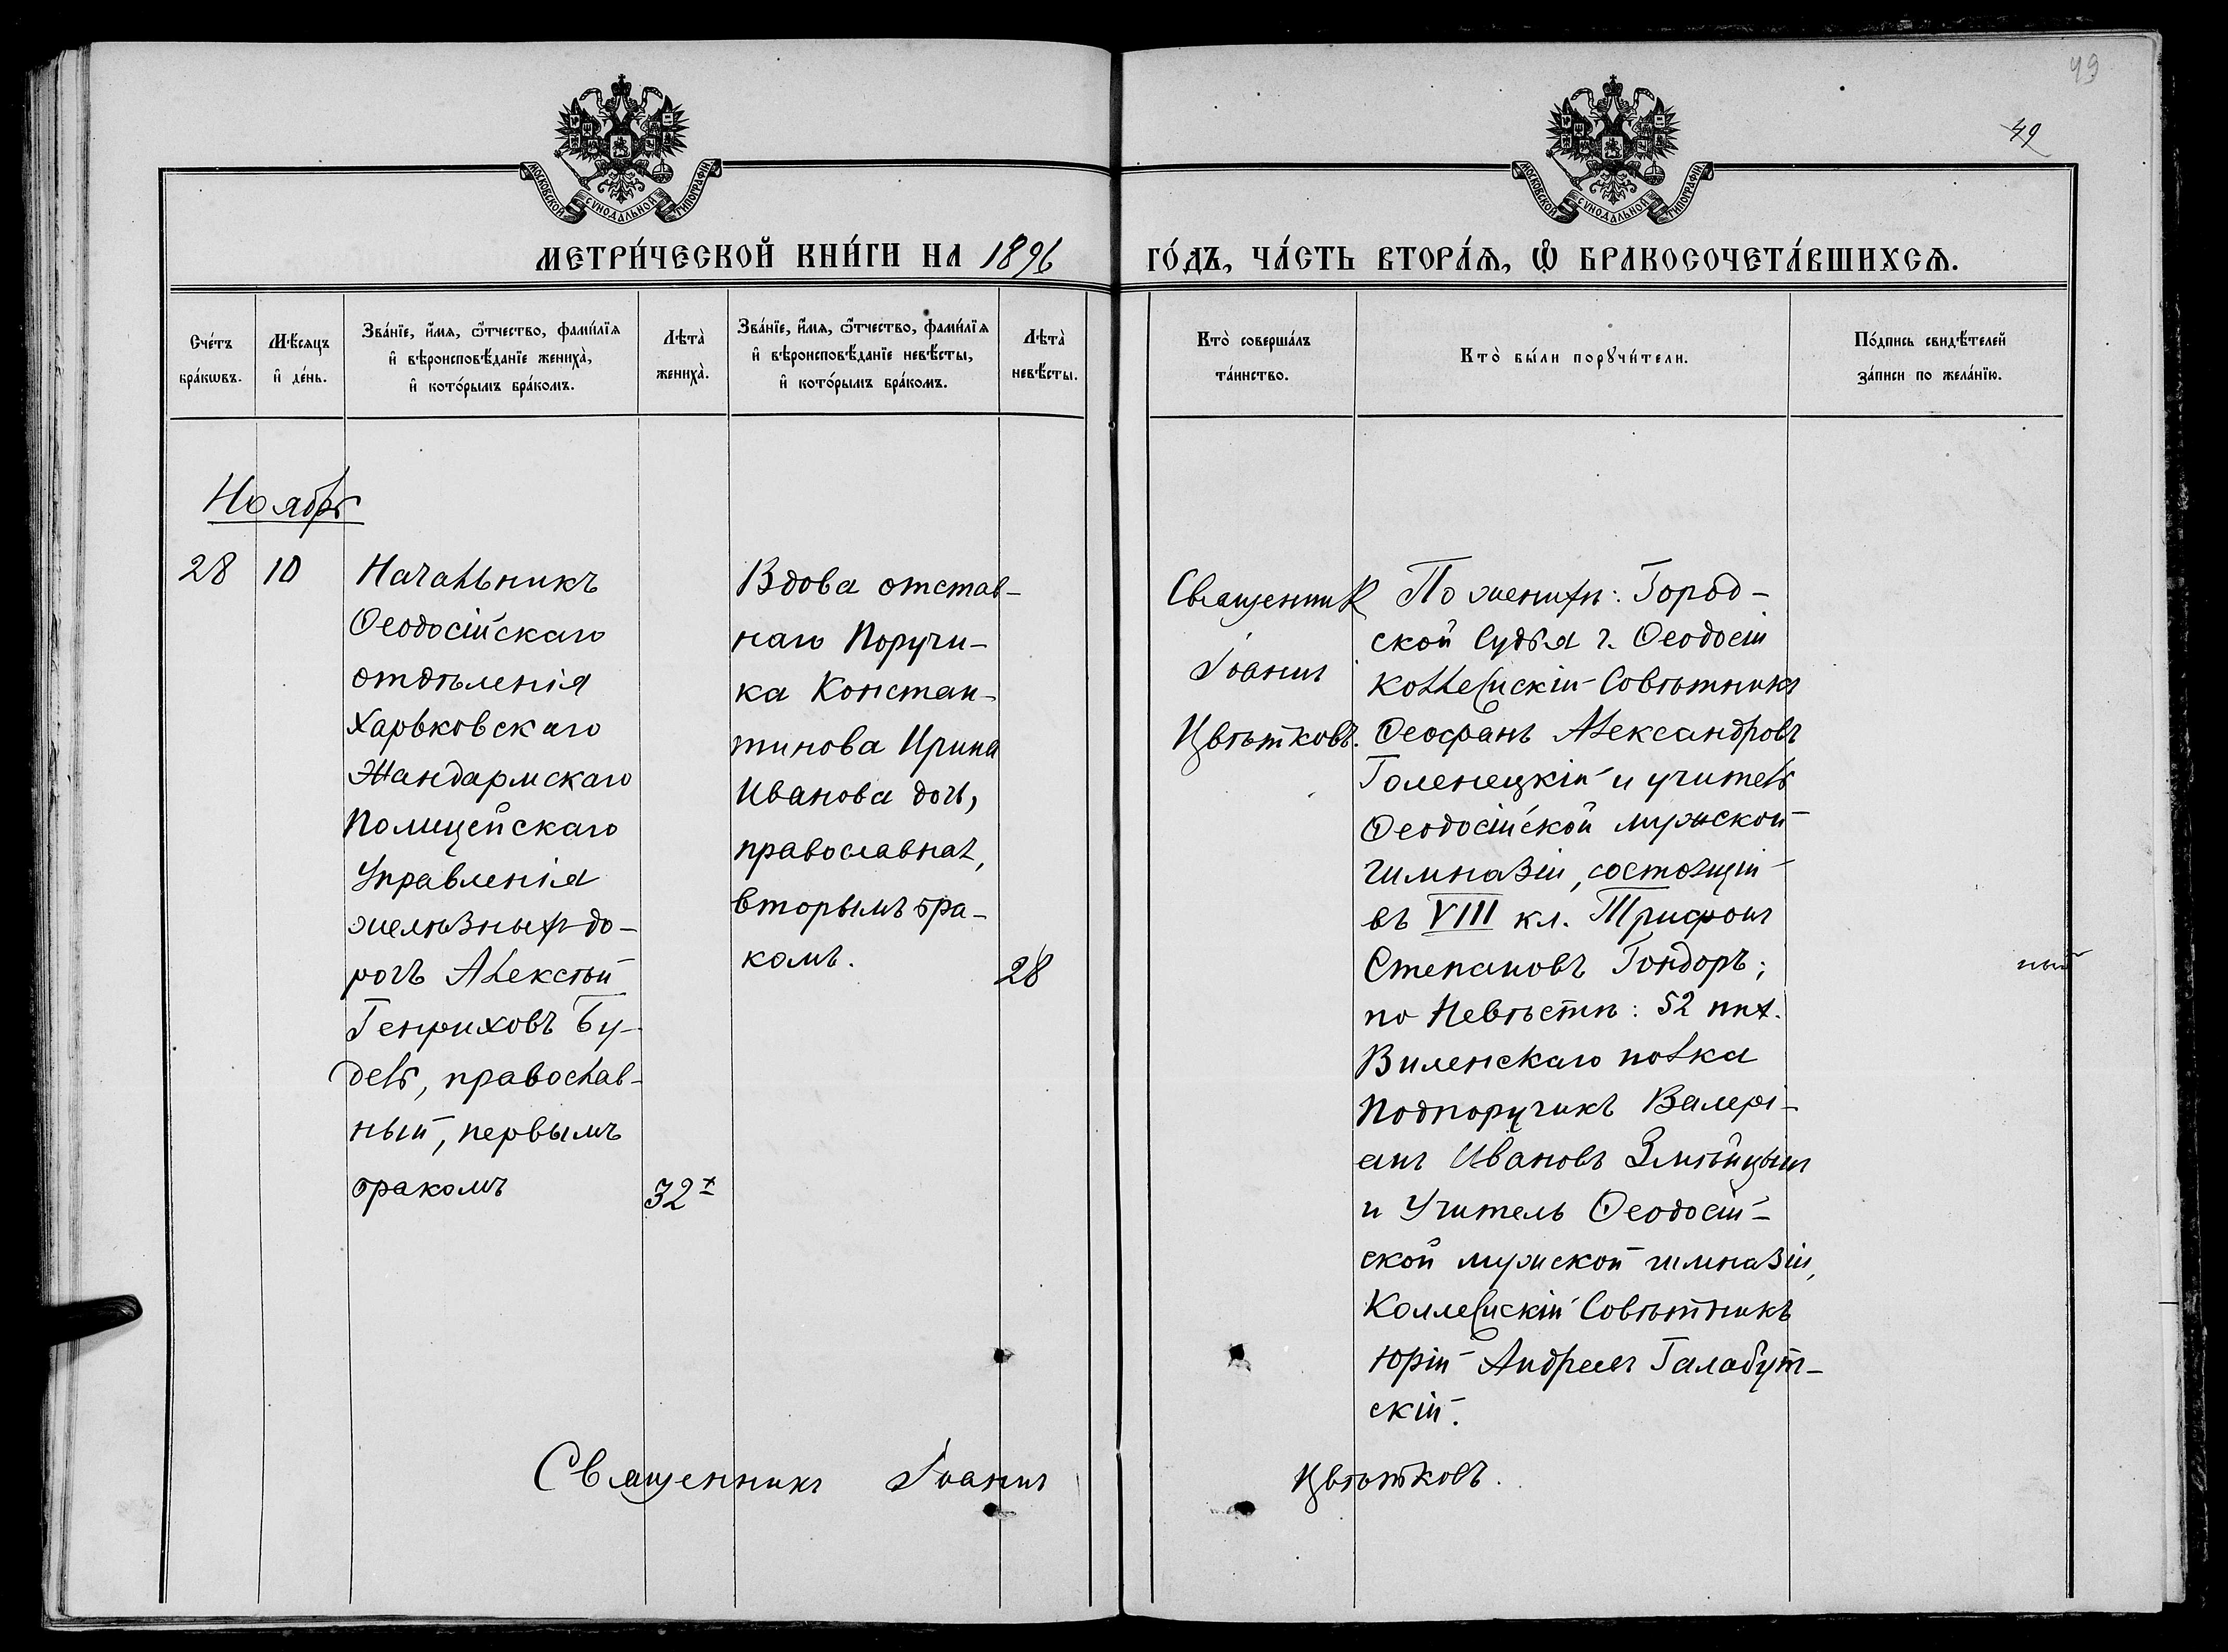 49
49
МОСКОВСКОЙ СѴНОДАЛЬНОЙ ТИПОГРАФІИ
МОСКОВСКОЙ СѴНОДАЛЬНОЙ ТИПОГРАФІИ
МЕТРИ́ЧЕСКОЙ КНИ́ГИ НА 1896 ГО́ДЪ, ЧА́СТЬ ВТОРА́Ѧ, Ѽ БРАКОСОЧЕТА́ВШИХСѦ.
Сче́тъ
бра́кѡвъ.
Мѣ́сяцъ
и҆ де́нь.
Зва́нїе, и҆́мя, ѻ҆́тчество, фами́лїѧ
и҆ вѣроисповѣ́данїе жениха̀,
и҆ кото́рымъ бра́комъ.
Лѣта̀
жениха̀.
Зва́нїе, и҆́мя, ѻ҆́тчество, фами́лїѧ
и҆ вѣроисповѣ́данїе невѣ́сты,
и҆ кото́рымъ бра́комъ.
Лѣта̀
невѣ́сты.
Кто̀ соверша́лъ
та́инство.
Кто̀ бы́ли порꙋчи́тели.
По́дпись свидѣ́телей
за́писи по жела́нїю.
Ноябрь
28
10
Начальникъ
Ѳеодосійскаго
отдѣленія
Харьковскаго
Жандармскаго
Полицейскаго
Управленія
желѣзныхъ до-
рогъ Алексѣй
Генриховъ Бу-
дель, православ-
ный, первымъ
бракомъ
32
Вдова отстав-
наго Поручи-
ка Констан-
тинова Ирина
Иванова дочь,
православная,
вторымъ бра-
комъ.
28
Священникъ
Іоаннъ
Цвѣтковъ.
По женихѣ: Город-
ской Судья г. Ѳеодосіи
Коллежскій Совѣтникъ
Ѳеофанъ Александровъ
Голенецкій и учитель
Ѳеодосійской мужской
гимназіи, состоящій
въ VIII кл. Трифонъ
Степановъ Гондоръ;
по Невѣстѣ: 52 пѣх.
Виленскаго полка
Подпоручикъ Валері-
анъ Ивановъ Змѣйцынъ
и Учитель Ѳеодосій-
ской мужской гимназіи,
Коллежскій Совѣтникъ
Юрій Андреевъ Галабут-
скій.
ный
Священникъ Іоаннъ Цвѣтковъ.